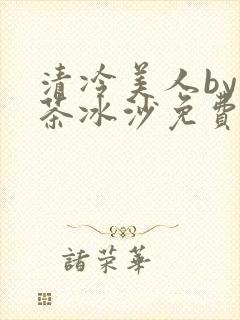 清冷美人by
茶冰沙免費
諸荣華